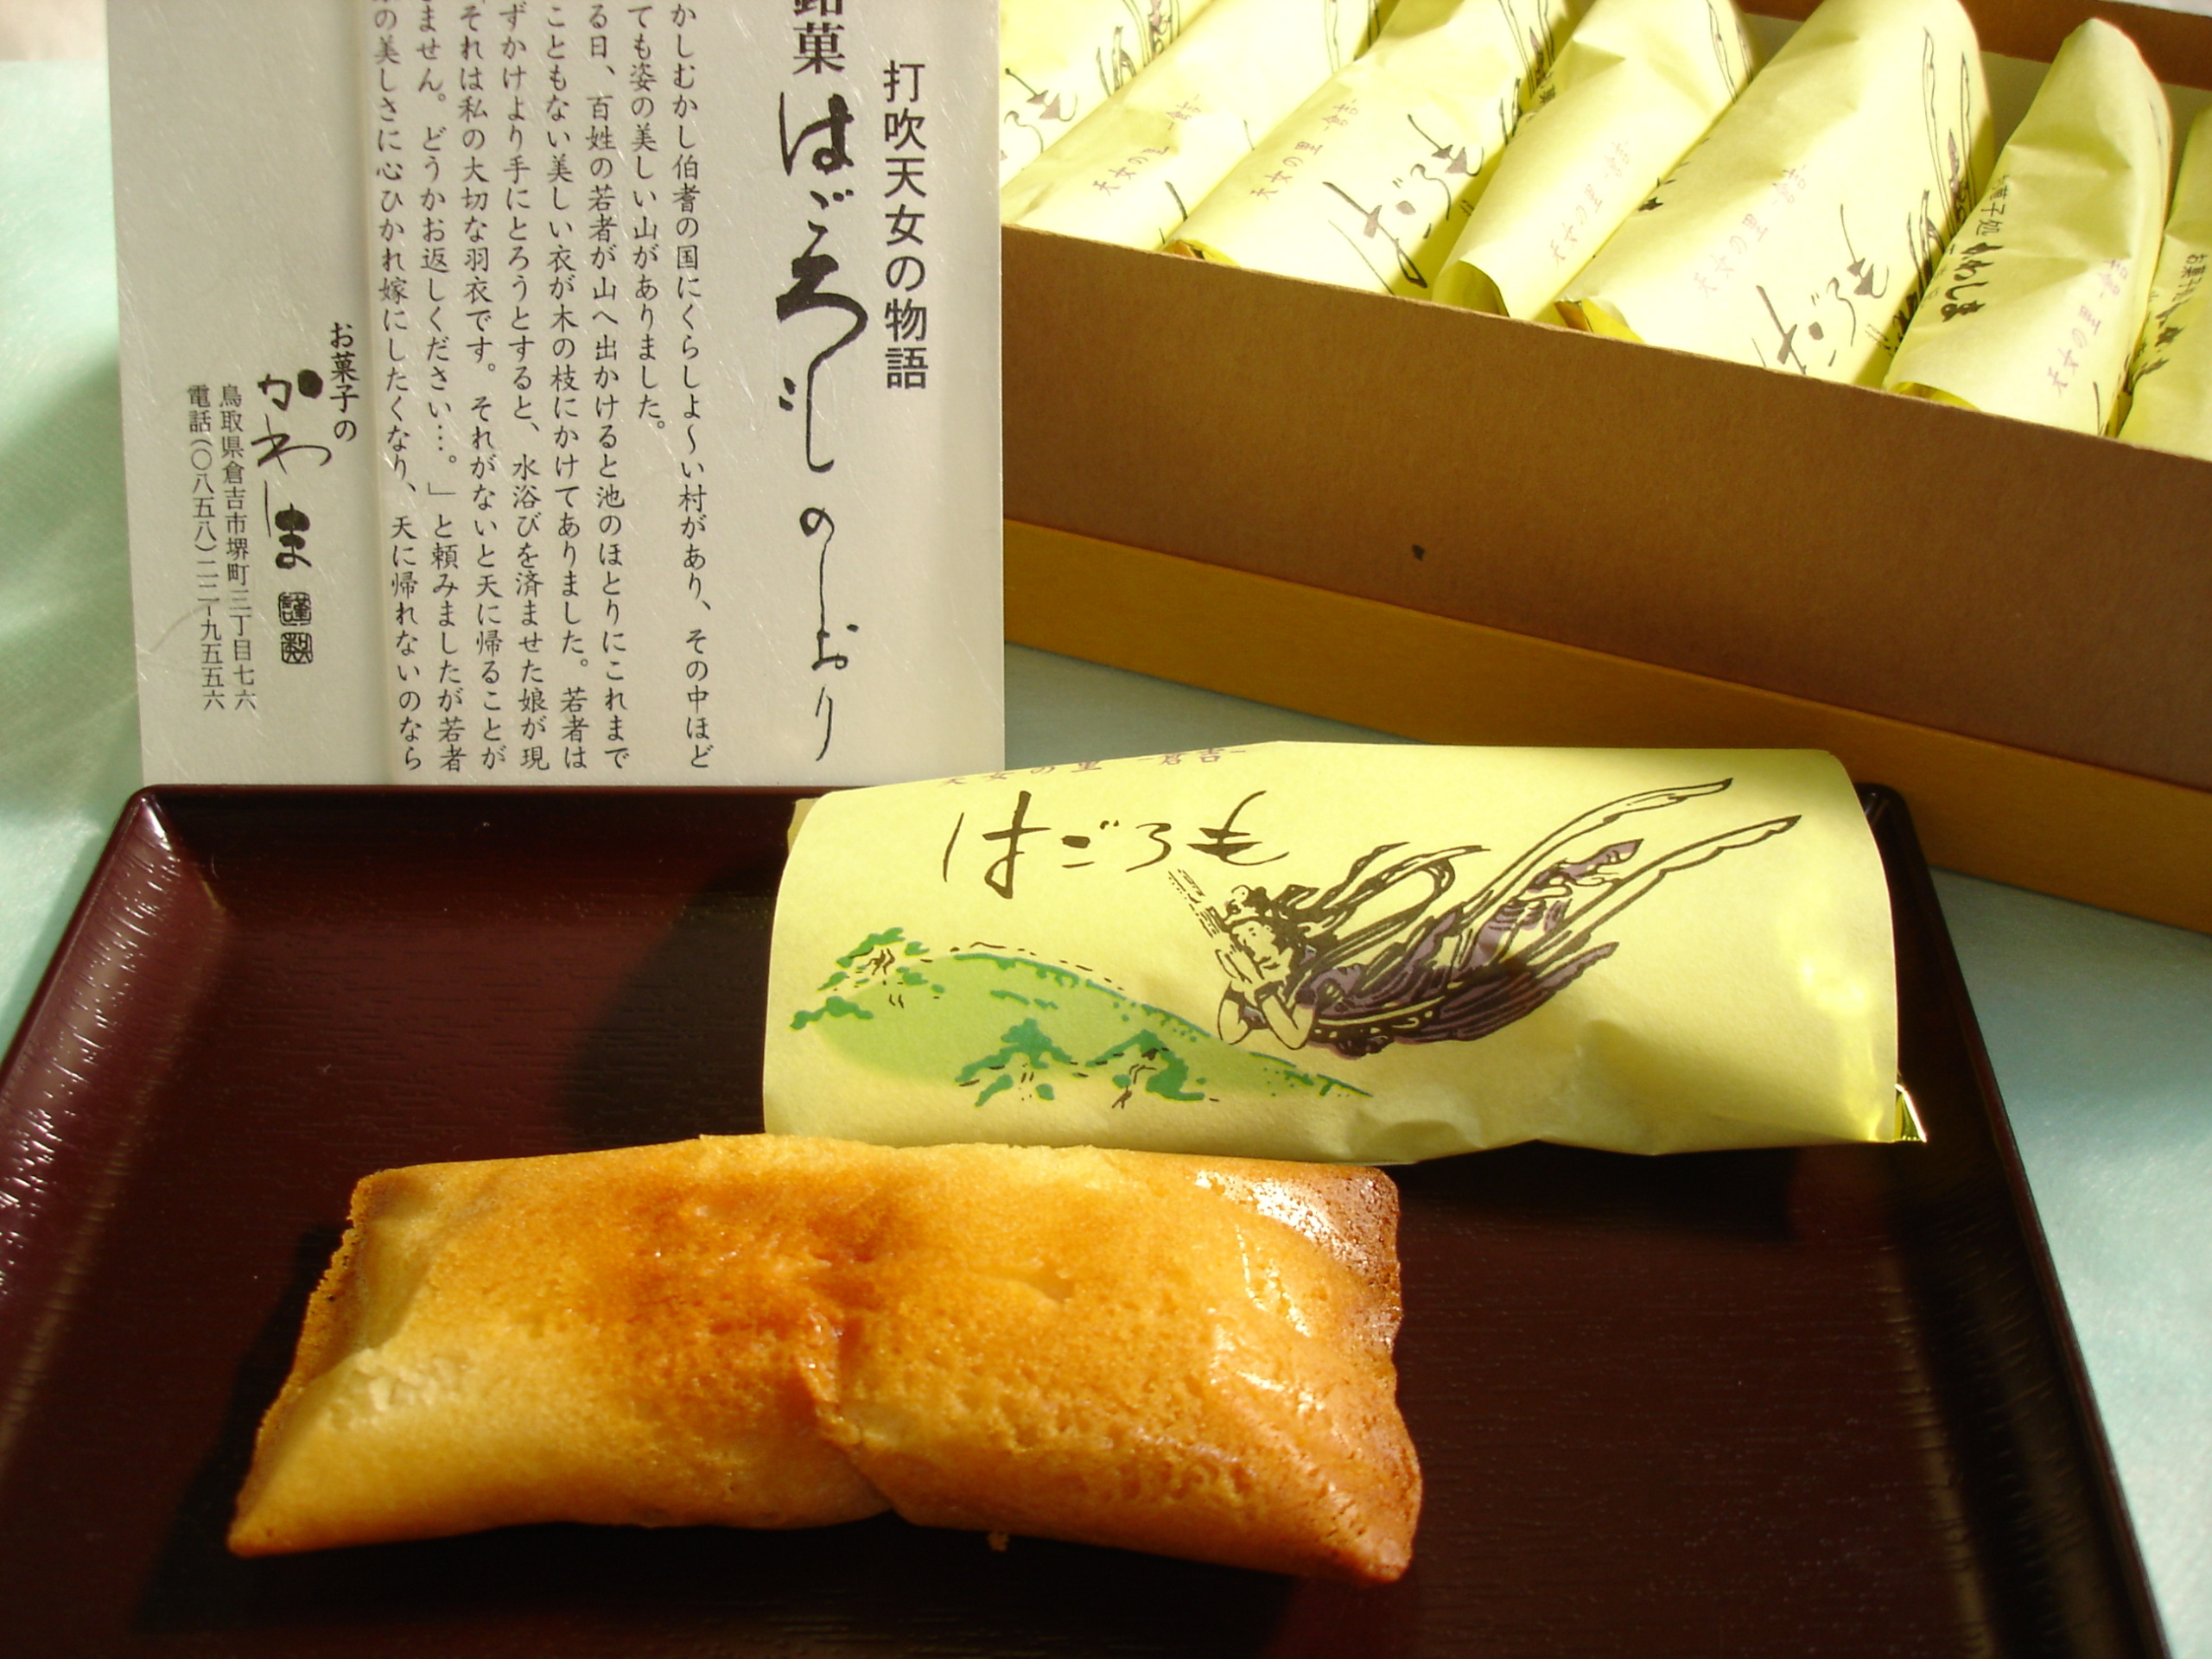 打吹天女の物語
銘菓はごろものしおり
かしむかし伯耆の国にくらしよ～い村があり、その中ほど
ても姿の美しい山がありました。
る日、百姓の若者が山へ出かけると池のほとりにこれまで
こともない美しい衣が木の枝にかけてありました。若者は
ずかけより手にとろうとすると、水浴びを済ませた娘が現
それは私の大切な羽衣です。それがないと天に帰ることが
ません。どうかお返しください…。」と頼みましたが若者
の美しさに心ひかれ嫁にしたくなり、天に帰れないのなら
お菓子の
かわしま
謹製
鳥取県倉吉市堺町三丁目七六
電話(〇八五八)二二ー九五五六
天女の里-倉吉-
はごろも
天女の里-倉吉-
天女の里-倉吉-
はごろも
天女の里-倉吉-
天女の里-倉吉-
はごろも
お菓子処かわしま
天女の里-倉吉-